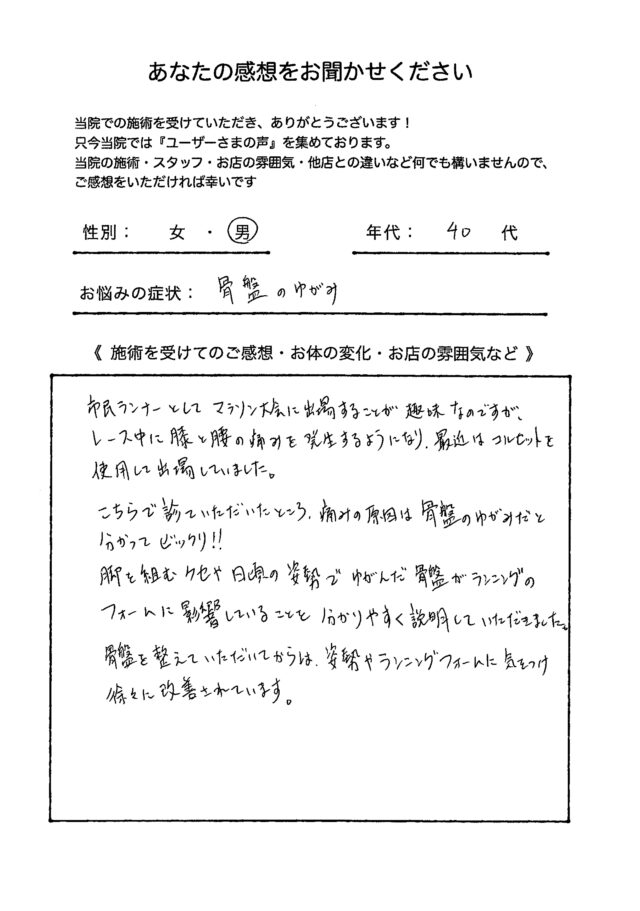 あなたの感想をお聞かせください
当院での施術を受けていただき、ありがとうございます！
只今当院では『ユーザーさまの声』を集めております。
当院の施術・スタッフ・お店の雰囲気・他店との違いなど何でも構いませんので、
ご感想をいただければ幸いです
性別： 女 ・ 男 年代： 40 代
お悩みの症状： 骨盤のゆがみ
《 施術を受けてのご感想・お体の変化・お店の雰囲気など 》
市民ランナーとしてマラソン大会に出場することが趣味なのですが、
レース中に膝と腰の痛みを発生するようになり、最近はコルセットを
使用して出場していました。
こちらで診ていただいたところ、痛みの原因は骨盤のゆがみだと
分かってビックリ!!
脚を組むクセや日頃の姿勢でゆがんだ骨盤がランニングの
フォームに影響していることを分かりやすく説明していただきました。
骨盤を整えていただいてからは、姿勢やランニングフォームに気をつけ
徐々に改善されています。